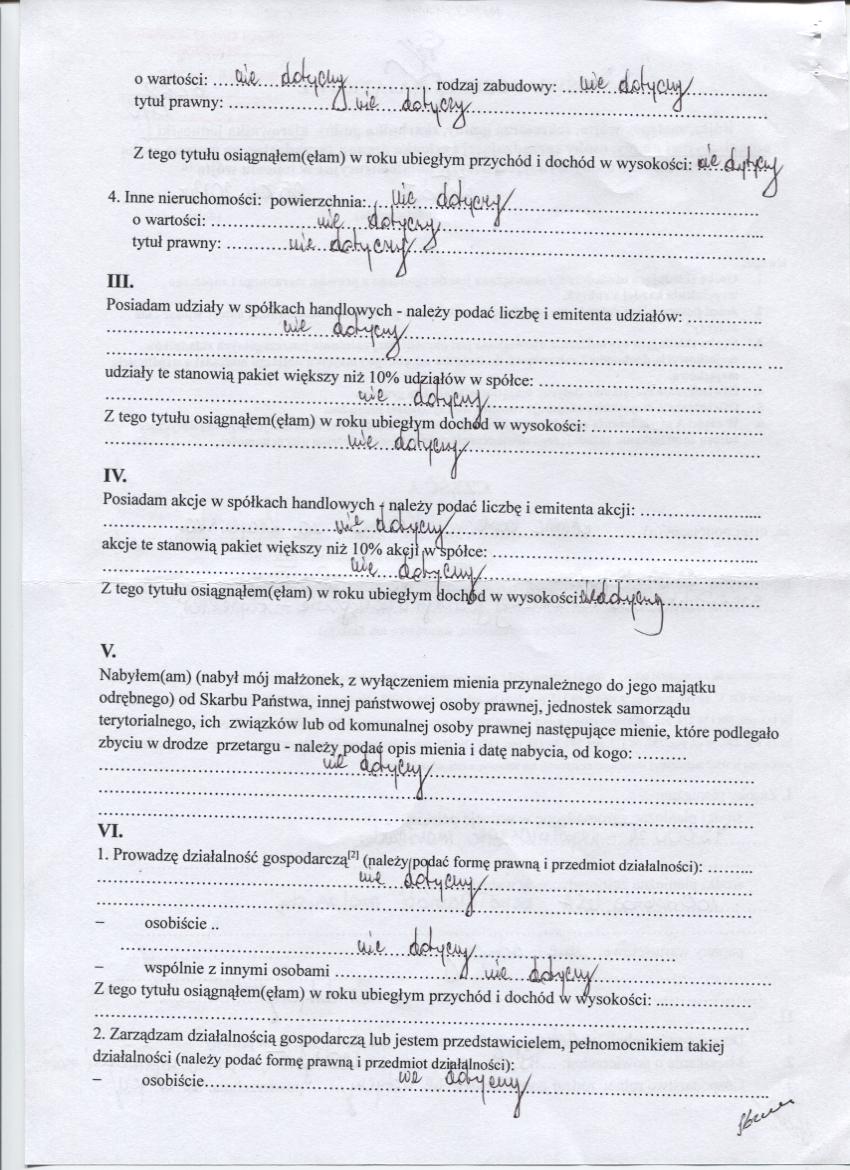 o wartości: ....nie dotyczy.... rodzaj zabudowy: ...nie dotyczy....
tytuł prawny: ....nie dotyczy....
Z tego tytułu osiągnąłem(ęłam) w roku ubiegłym przychód i dochód w wysokości: nie dotyczy
4. Inne nieruchomości: powierzchnia: nie dotyczy....
o wartości: ....nie dotyczy....
tytuł prawny: ....nie dotyczy....
III.
Posiadam udziały w spółkach handlowych - należy podać liczbę i emitenta udziałów: ....
....nie dotyczy....
udziały te stanowią pakiet większy niż 10% udziałów w spółce: ....
....nie dotyczy....
Z tego tytułu osiągnąłem(ęłam) w roku ubiegłym dochód w wysokości: ....
....nie dotyczy....
IV.
Posiadam akcje w spółkach handlowych - należy podać liczbę i emitenta akcji: ....
....nie dotyczy....
akcje te stanowią pakiet większy niż 10% akcji w spółce: ....
....nie dotyczy....
Z tego tytułu osiągnąłem(ęłam) w roku ubiegłym dochód w wysokości: nie dotyczy....
V.
Nabyłem(am) (nabył mój małżonek, z wyłączeniem mienia przynależnego do jego majątku
odrębnego) od Skarbu Państwa, innej państwowej osoby prawnej, jednostek samorządu
terytorialnego, ich związków lub od komunalnej osoby prawnej następujące mienie, które podlegało
zbyciu w drodze przetargu - należy podać opis mienia i datę nabycia, od kogo: ....
....nie dotyczy....
VI.
1. Prowadzę działalność gospodarczą[2] (należy podać formę prawną i przedmiot działalności): ....
....nie dotyczy....
– osobiście ..
....nie dotyczy....
– wspólnie z innymi osobami ....nie dotyczy....
Z tego tytułu osiągnąłem(ęłam) w roku ubiegłym przychód i dochód w wysokości: ....
2. Zarządzam działalnością gospodarczą lub jestem przedstawicielem, pełnomocnikiem takiej
działalności (należy podać formę prawną i przedmiot działalności):
– osobiście....nie dotyczy....